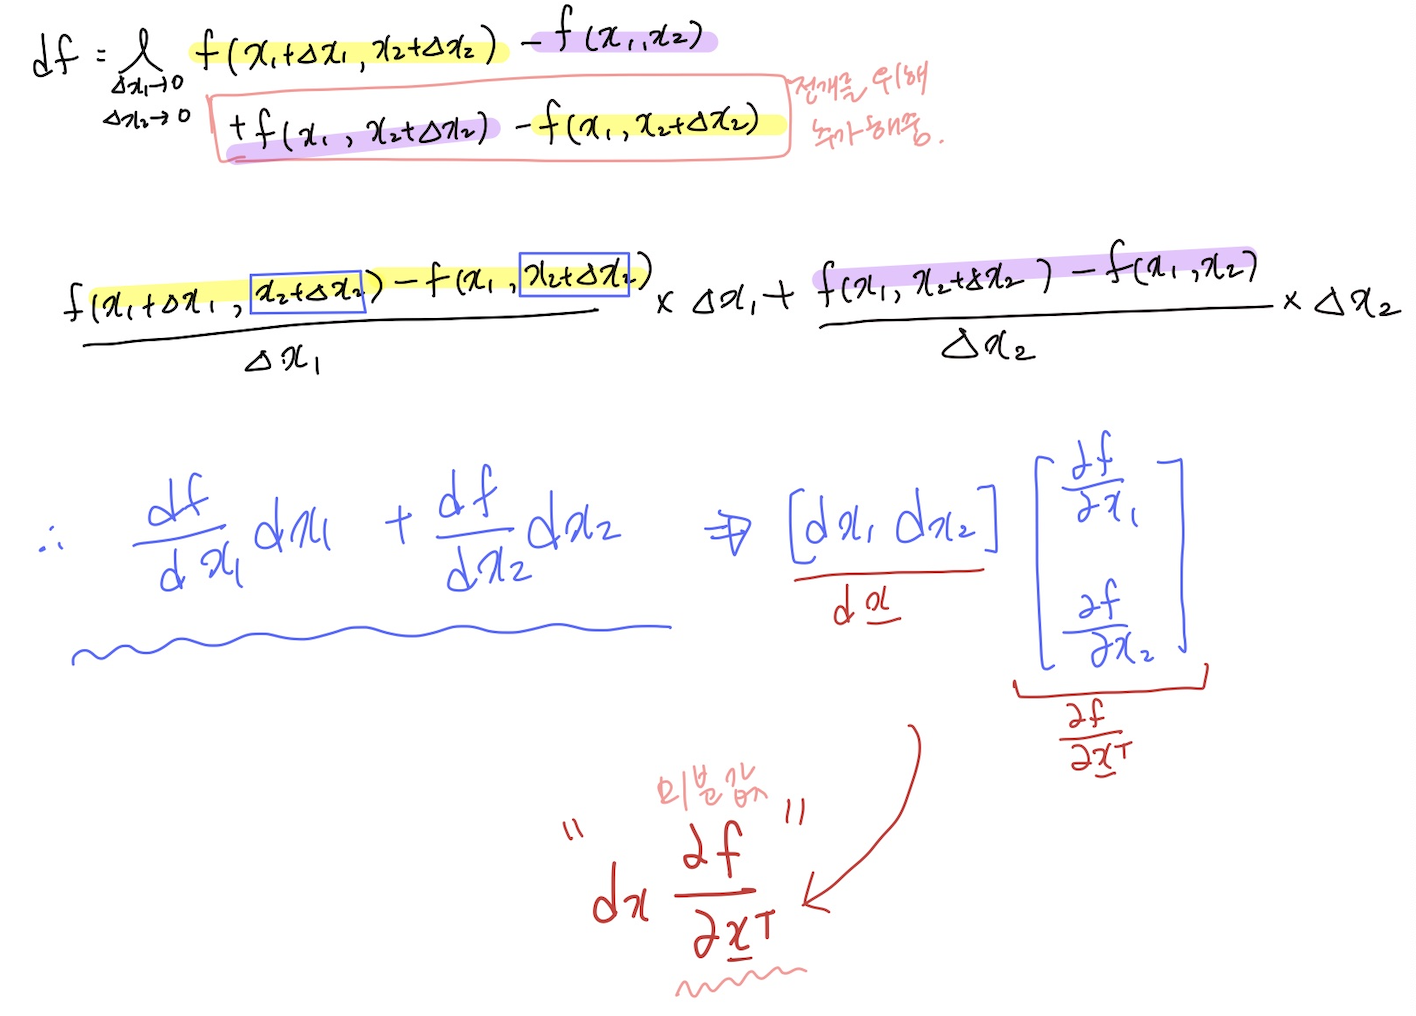 df = lim f(x₁+Δx₁, x₂+Δx₂) - f(x₁, x₂)
Δx₁→0
Δx₂→0
+ f(x₁, x₂+Δx₂) - f(x₁, x₂+Δx₂)
전개를 위해
추가해줌.
f(x₁+Δx₁, x₂+Δx₂) - f(x₁, x₂+Δx₂) / Δx₁ × Δx₁ + f(x₁, x₂+Δx₂) - f(x₁, x₂) / Δx₂ × Δx₂
∴ df/dx₁ dx₁ + df/dx₂ dx₂ ⇒ [dx₁ dx₂] [∂f/∂x₁
∂f/∂x₂]
dx
∂f/∂xᵀ
미분값
" dx ∂f/∂xᵀ "